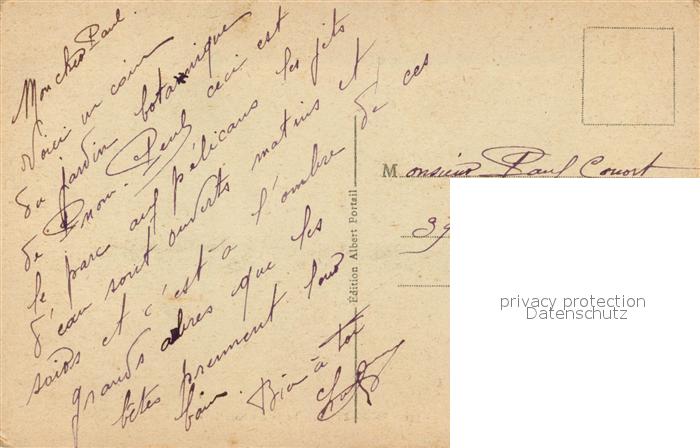 Mon cher Paul.
Voici un coin
du jardin botannique
de Pnom-Penh ceci est
le parc aux pélicans les jets
d'eau sont ouverts matins et
soirs et c'est à l'ombre de ces
grands arbres que les
bêtes prennent leur
bain. Bien à toi
Édition Albert Portail
Monsieur Paul Couort
39
privacy protection
Datenschutz